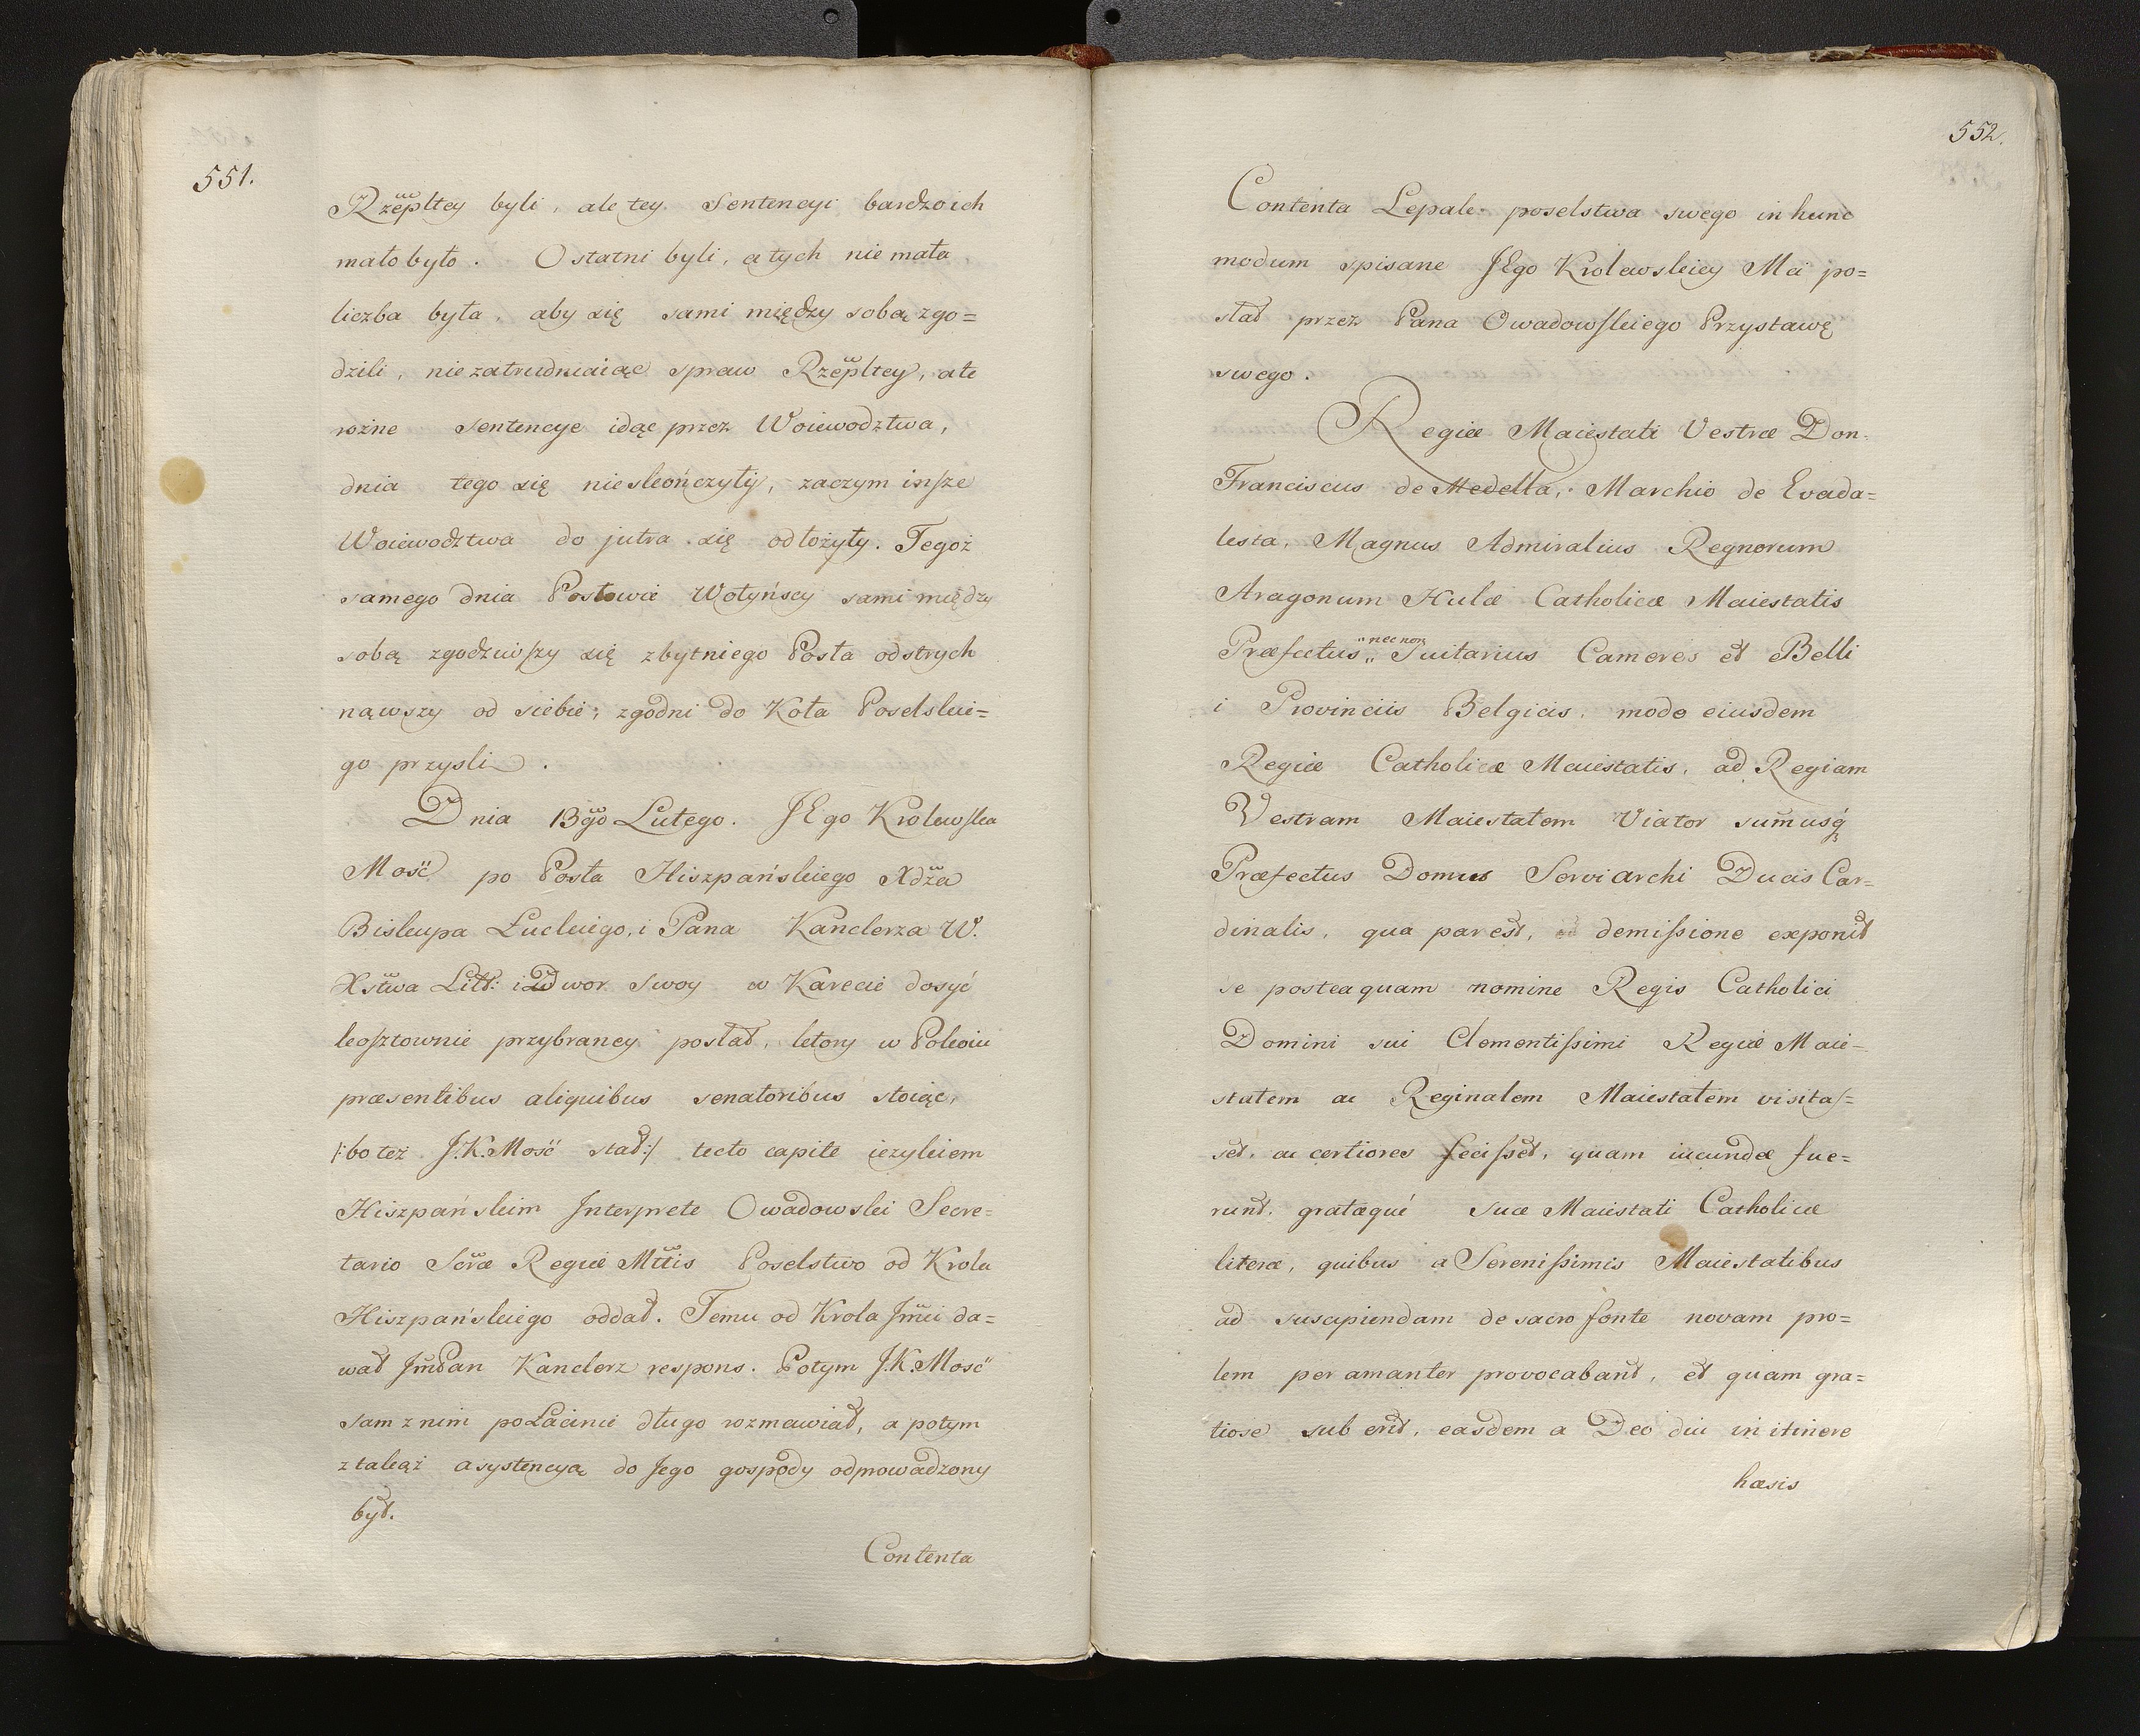 551.
Rzepltey byli, ale tey Sentencyi bardzo ich
mało było. Ostatni byli, a tych nie mała
liczba była, aby się sami między sobą zgo=
dzili, nie zatrudniaiąc spraw Rzepltey, ale
rożne Sentencye idąc przez Woiewodztwa,
dnia tego się nieskończyły, zaczym insze
Woiewodztwa do jutra się odłożyły. Tegoż
samego dnia Posłowie Wołyńscy sami między
sobą zgodziwszy się zbytniego Posła odstrych
nąwszy od siebie; zgodni do Koła Poselskie=
go przysli.
Dnia 13go Lutego. JEgo Krolewska
Mość po Posła Hiszpańskiego Xdza
Biskupa Luckiego, i Pana Kanclerza W.
Xstwa Litt: i Dwor Swoy w Karecie dosyć
kosztownie przybraney posłał, ktory w Pokoiu
præsentibus aliquibus senatoribus stoiąc,
/:bo też J.K.Mość stał:/ tecto capite ięzykiem
Hiszpańskim Interprete Owadowski Secre=
tario Scræ Regiæ Mttis Poselstwo od Krola
Hiszpańskiego oddał. Temu od Krola Jmci da=
wał JmPan Kanclerz respons. Potym J.K.Mość
sam z nim po Łacinie długo rozmawiał, a potym
z takąż asystencyą do Jego gospody odprowadzony
był.
Contenta
552.
Contenta Lepale poselstwa swego in hunc
modum spisane JEgo Krolewskiey Mci po=
słał przez Pana Owadowskiego Przystawę
swego.
Regiæ Maiestati Vestræ Don
Franciscus de Medella, Marchio de Evada=
lesta, Magnus Admiralius Regnorum
Aragonum Hulæ Catholicæ Maiestatis
Præfectus,, "nec non Tuitarius Cameres et Belli
i Provinciis Belgicis, modo eiusdem
Regiæ Catholicæ Maiestatis, ad Regiam
Vestram Maiestatem Viator sumusq
Præfectus Domus Serviarchi Ducis Car=
dinalis, qua par est, demissione exponit
se posteaquam nomine Regis Catholici
Domini sui Clementissimi Regiæ Maie=
statem ac Reginalem Maiestatem visitas=
set, ac certiores fecisset, quam iucundæ fue=
runt, gratæque Suæ Maiestati Catholicæ
literæ, quibus a Serenissimis Maiestatibus
ad suscipiendam de sacro fonte novam pro=
lem per amanter provocabant, et quam gra=
tiose sub erit, easdem a Deo diu in itinere
hæsis